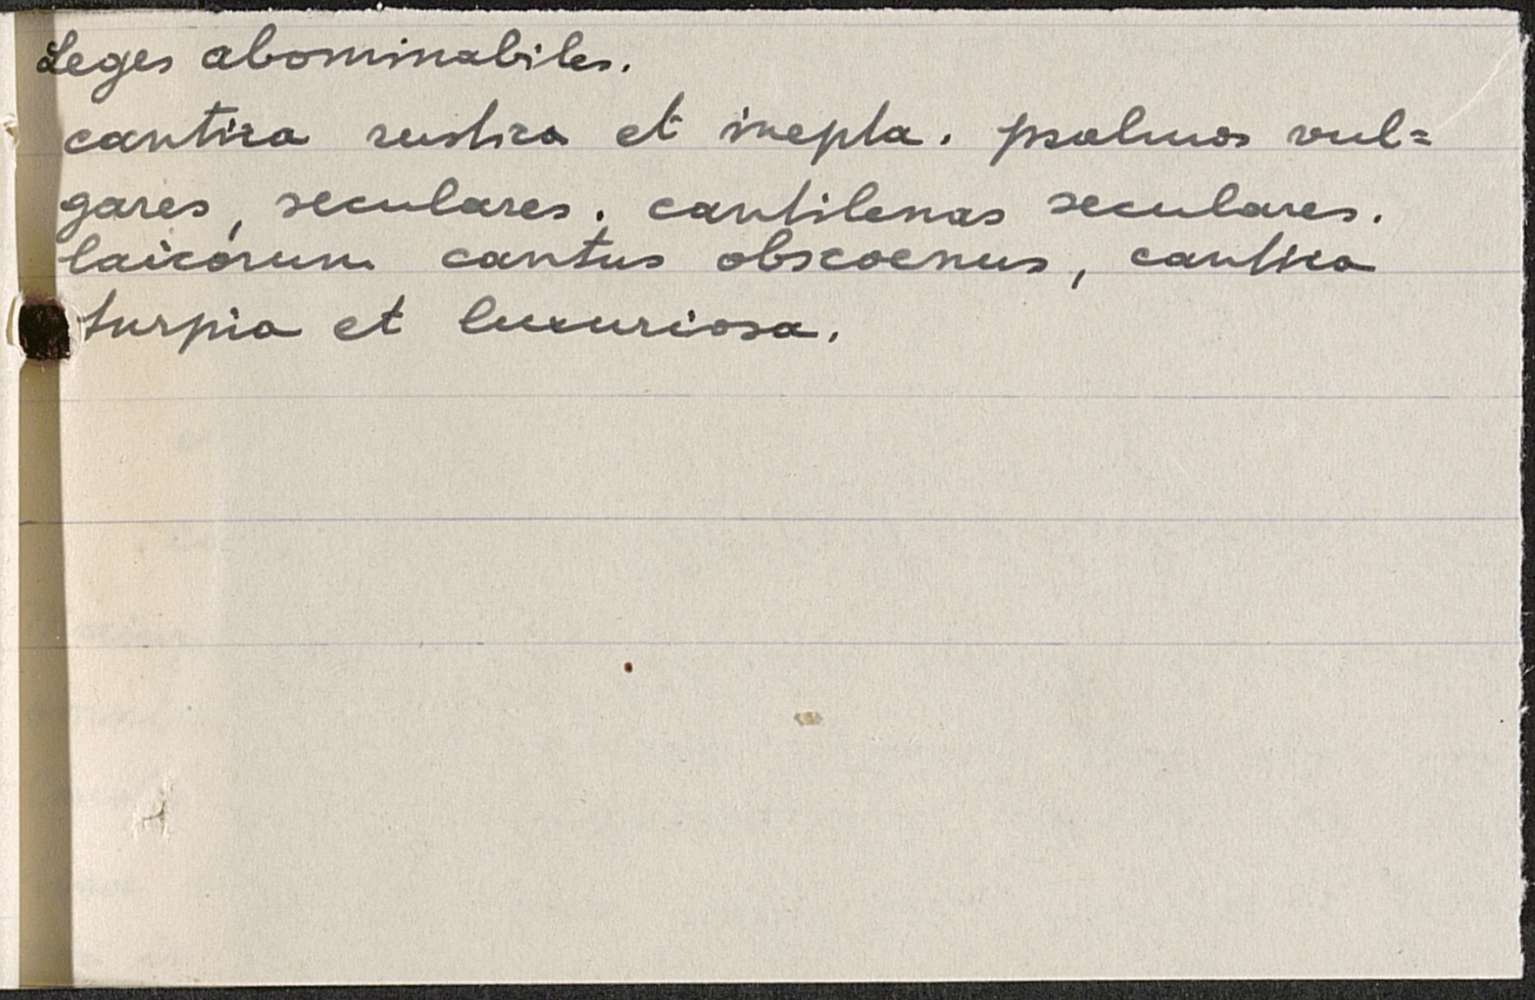 Leges abominabiles.
cantica rustica et inepta. psalmos vul=
gares, seculares. cantilenas seculares.
laicorum cantus obscoenus, cantica
turpia et luxuriosa.